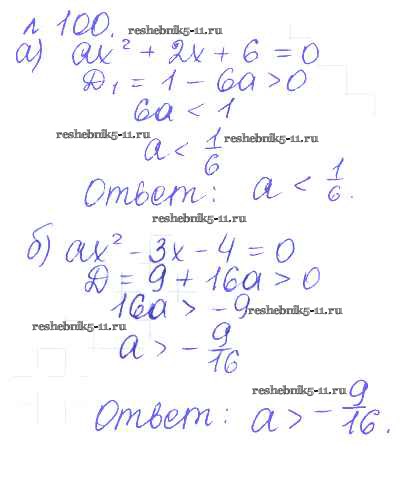 № 100. reshebnik5-11.ru
а) ax² + 2x + 6 = 0
Д₁ = 1 - 6a > 0
6a < 1
reshebnik5-11.ru a < 1/6 reshebnik5-11.ru
Ответ: a < 1/6.
reshebnik5-11.ru
б) ax² - 3x - 4 = 0
Д = 9 + 16a > 0
16a > -9 reshebnik5-11.ru
reshebnik5-11.ru a > - 9/16
reshebnik5-11.ru
Ответ: a > - 9/16.